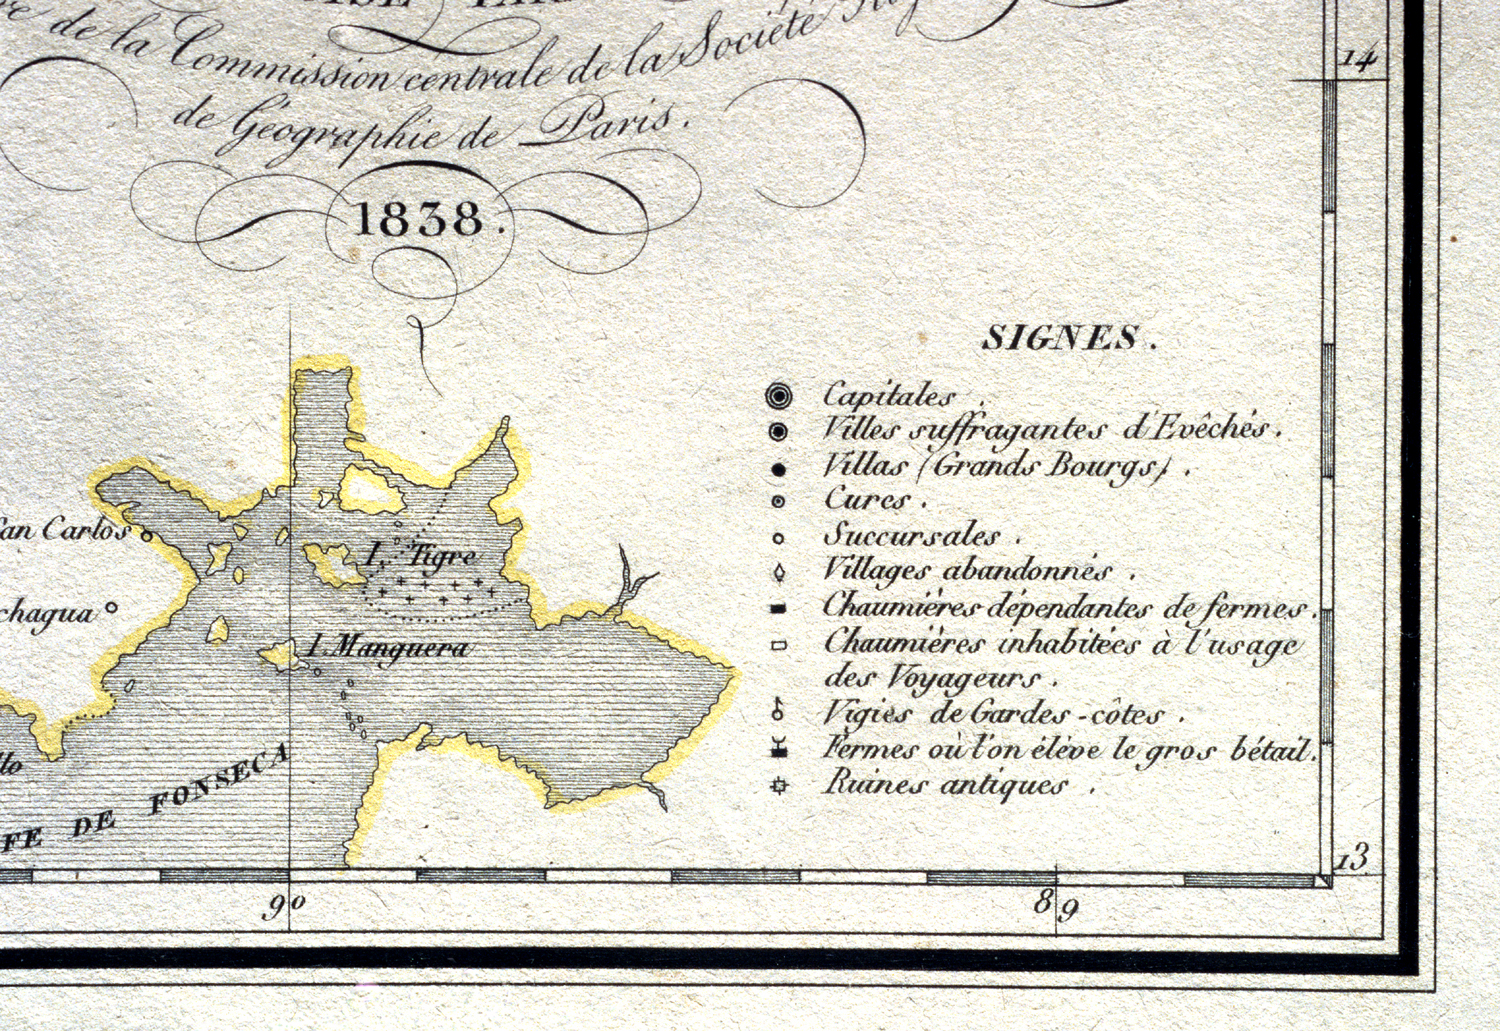 de la Commission centrale de la Société
de Géographie de Paris.
1838.
14
SIGNES.
Capitales.
Villes suffragantes d'Evêchés.
Villas (Grands Bourgs).
Cures.
Succursales.
Villages abandonnés.
Chaumières dépendantes de fermes.
Chaumières inhabitées à l'usage
des Voyageurs.
Vigies de Gardes-côtes.
Fermes où l'on élève le gros bétail.
Ruines antiques.
San Carlos
I. Tigre
chagua
I. Manguera
llo
FE DE FONSECA
13
90
89